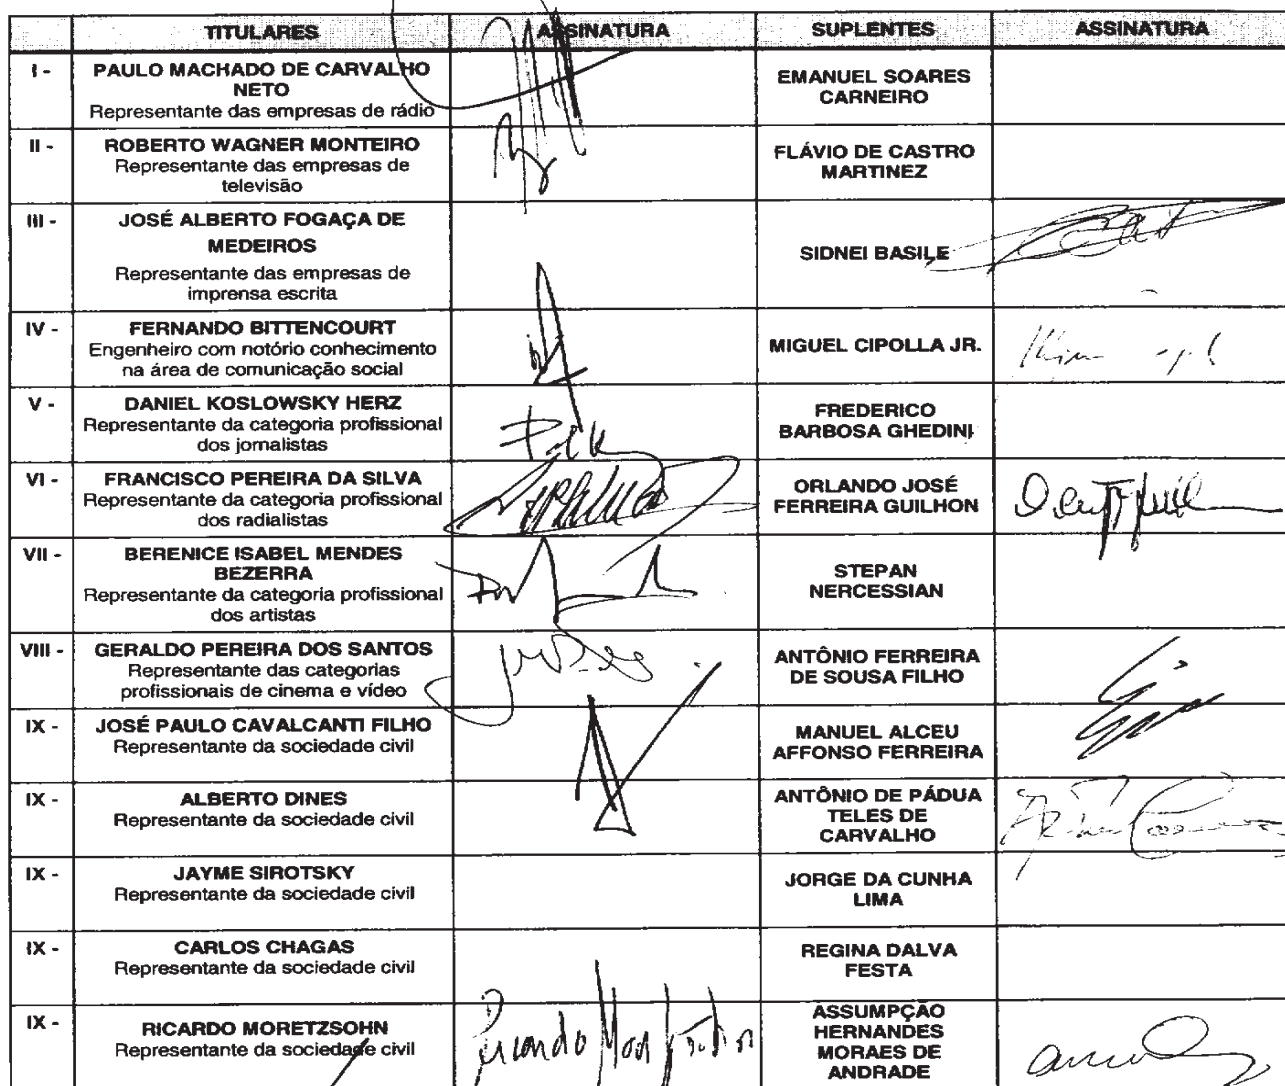 TITULARES ASSINATURA SUPLENTES ASSINATURA
I - PAULO MACHADO DE CARVALHO NETO
Representante das empresas de rádio
EMANUEL SOARES CARNEIRO
II - ROBERTO WAGNER MONTEIRO
Representante das empresas de
televisão
FLÁVIO DE CASTRO
MARTINEZ
III - JOSÉ ALBERTO FOGAÇA DE
MEDEIROS
Representante das empresas de
imprensa escrita
SIDNEI BASILE
IV - FERNANDO BITTENCOURT
Engenheiro com notório conhecimento
na área de comunicação social
MIGUEL CIPOLLA JR.
V - DANIEL KOSLOWSKY HERZ
Representante da categoria profissional
dos jornalistas
FREDERICO
BARBOSA GHEDINI
VI - FRANCISCO PEREIRA DA SILVA
Representante da categoria profissional
dos radialistas
ORLANDO JOSÉ
FERREIRA GUILHON
VII - BERENICE ISABEL MENDES
BEZERRA
Representante da categoria profissional
dos artistas
STEPAN
NERCESSIAN
VIII - GERALDO PEREIRA DOS SANTOS
Representante das categorias
profissionais de cinema e vídeo
ANTÔNIO FERREIRA
DE SOUSA FILHO
IX - JOSÉ PAULO CAVALCANTI FILHO
Representante da sociedade civil
MANUEL ALCEU
AFFONSO FERREIRA
IX - ALBERTO DINES
Representante da sociedade civil
ANTÔNIO DE PÁDUA
TELES DE
CARVALHO
IX - JAYME SIROTSKY
Representante da sociedade civil
JORGE DA CUNHA
LIMA
IX - CARLOS CHAGAS
Representante da sociedade civil
REGINA DALVA
FESTA
IX - RICARDO MORETZSOHN
Representante da sociedade civil
Ricardo
ASSUMPÇÃO
HERNANDES
MORAES DE
ANDRADE